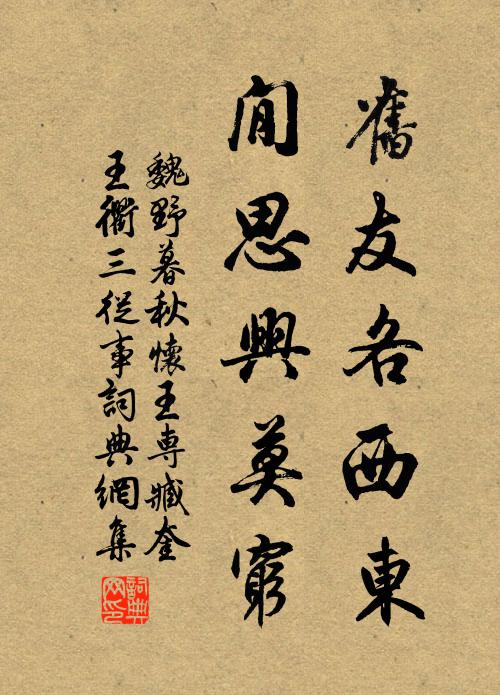 舊友各西東
閒思興莫窮
魏野暮秋懷王專臧奎
王衢三從事詞典網集
詞典网印